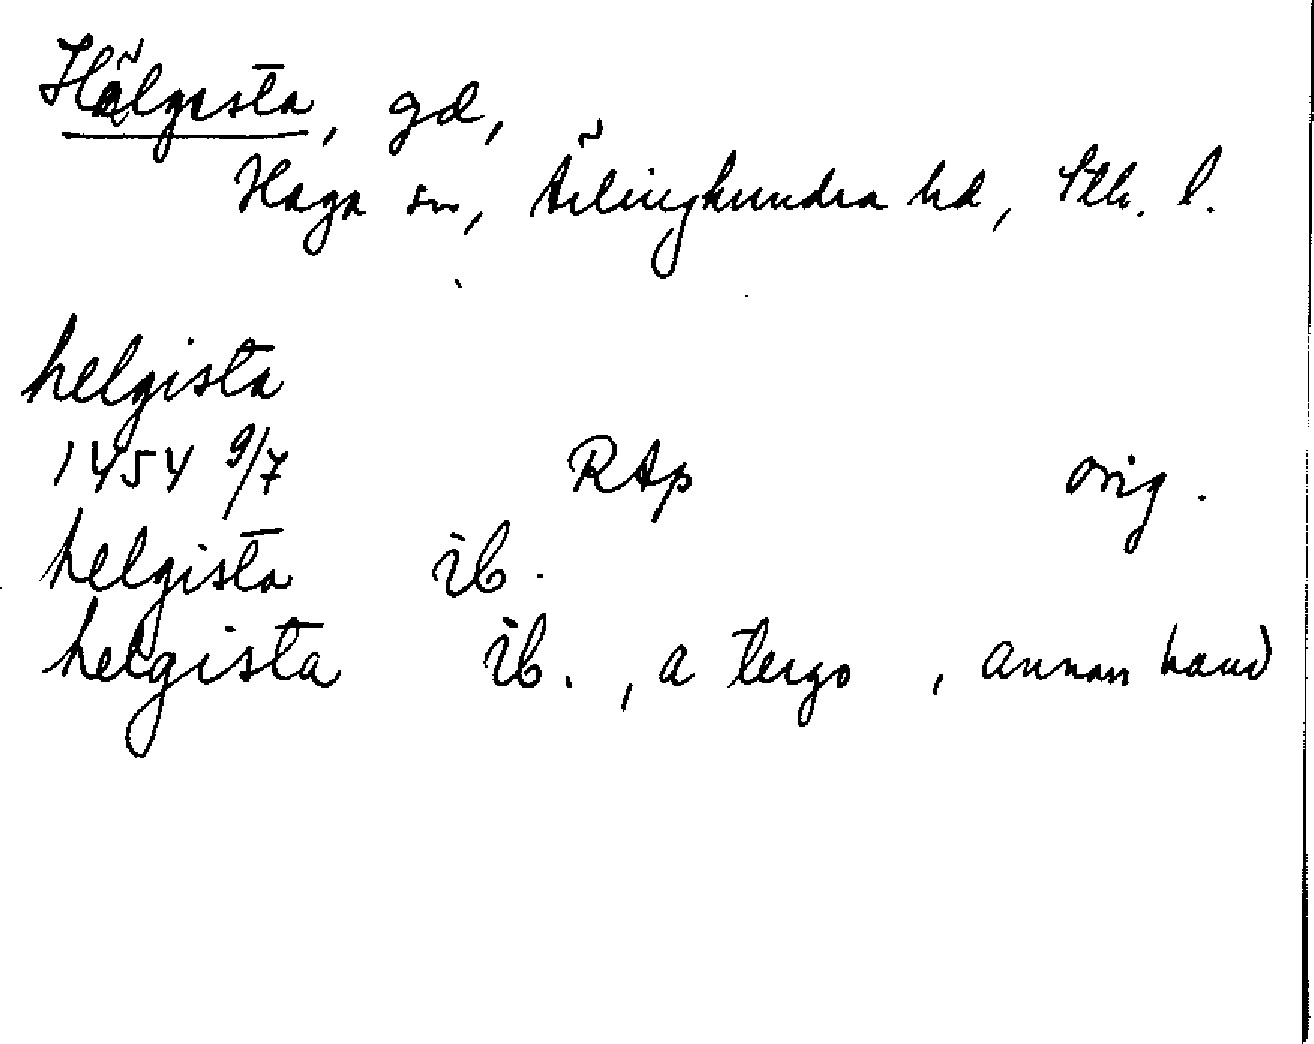 Hälgesta, gd,
Haga sn, Ärlinghundra hd, Sthlm. l.
helgista
1454 9/7 RAp orig.
helgista ib.
helgista ib., a tergo, annan hand